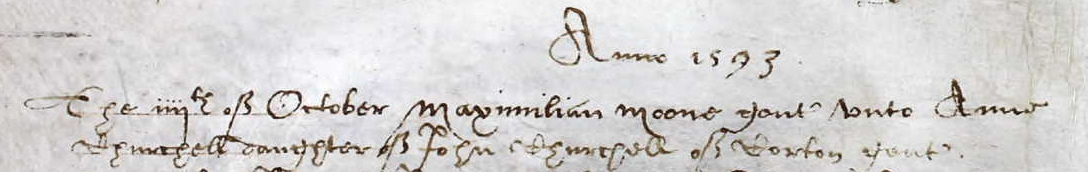 Anno 1593
The iiiith of October Maximilian Moone gent unto Anne
Churchell daughter of John Churchell of Corton gent.